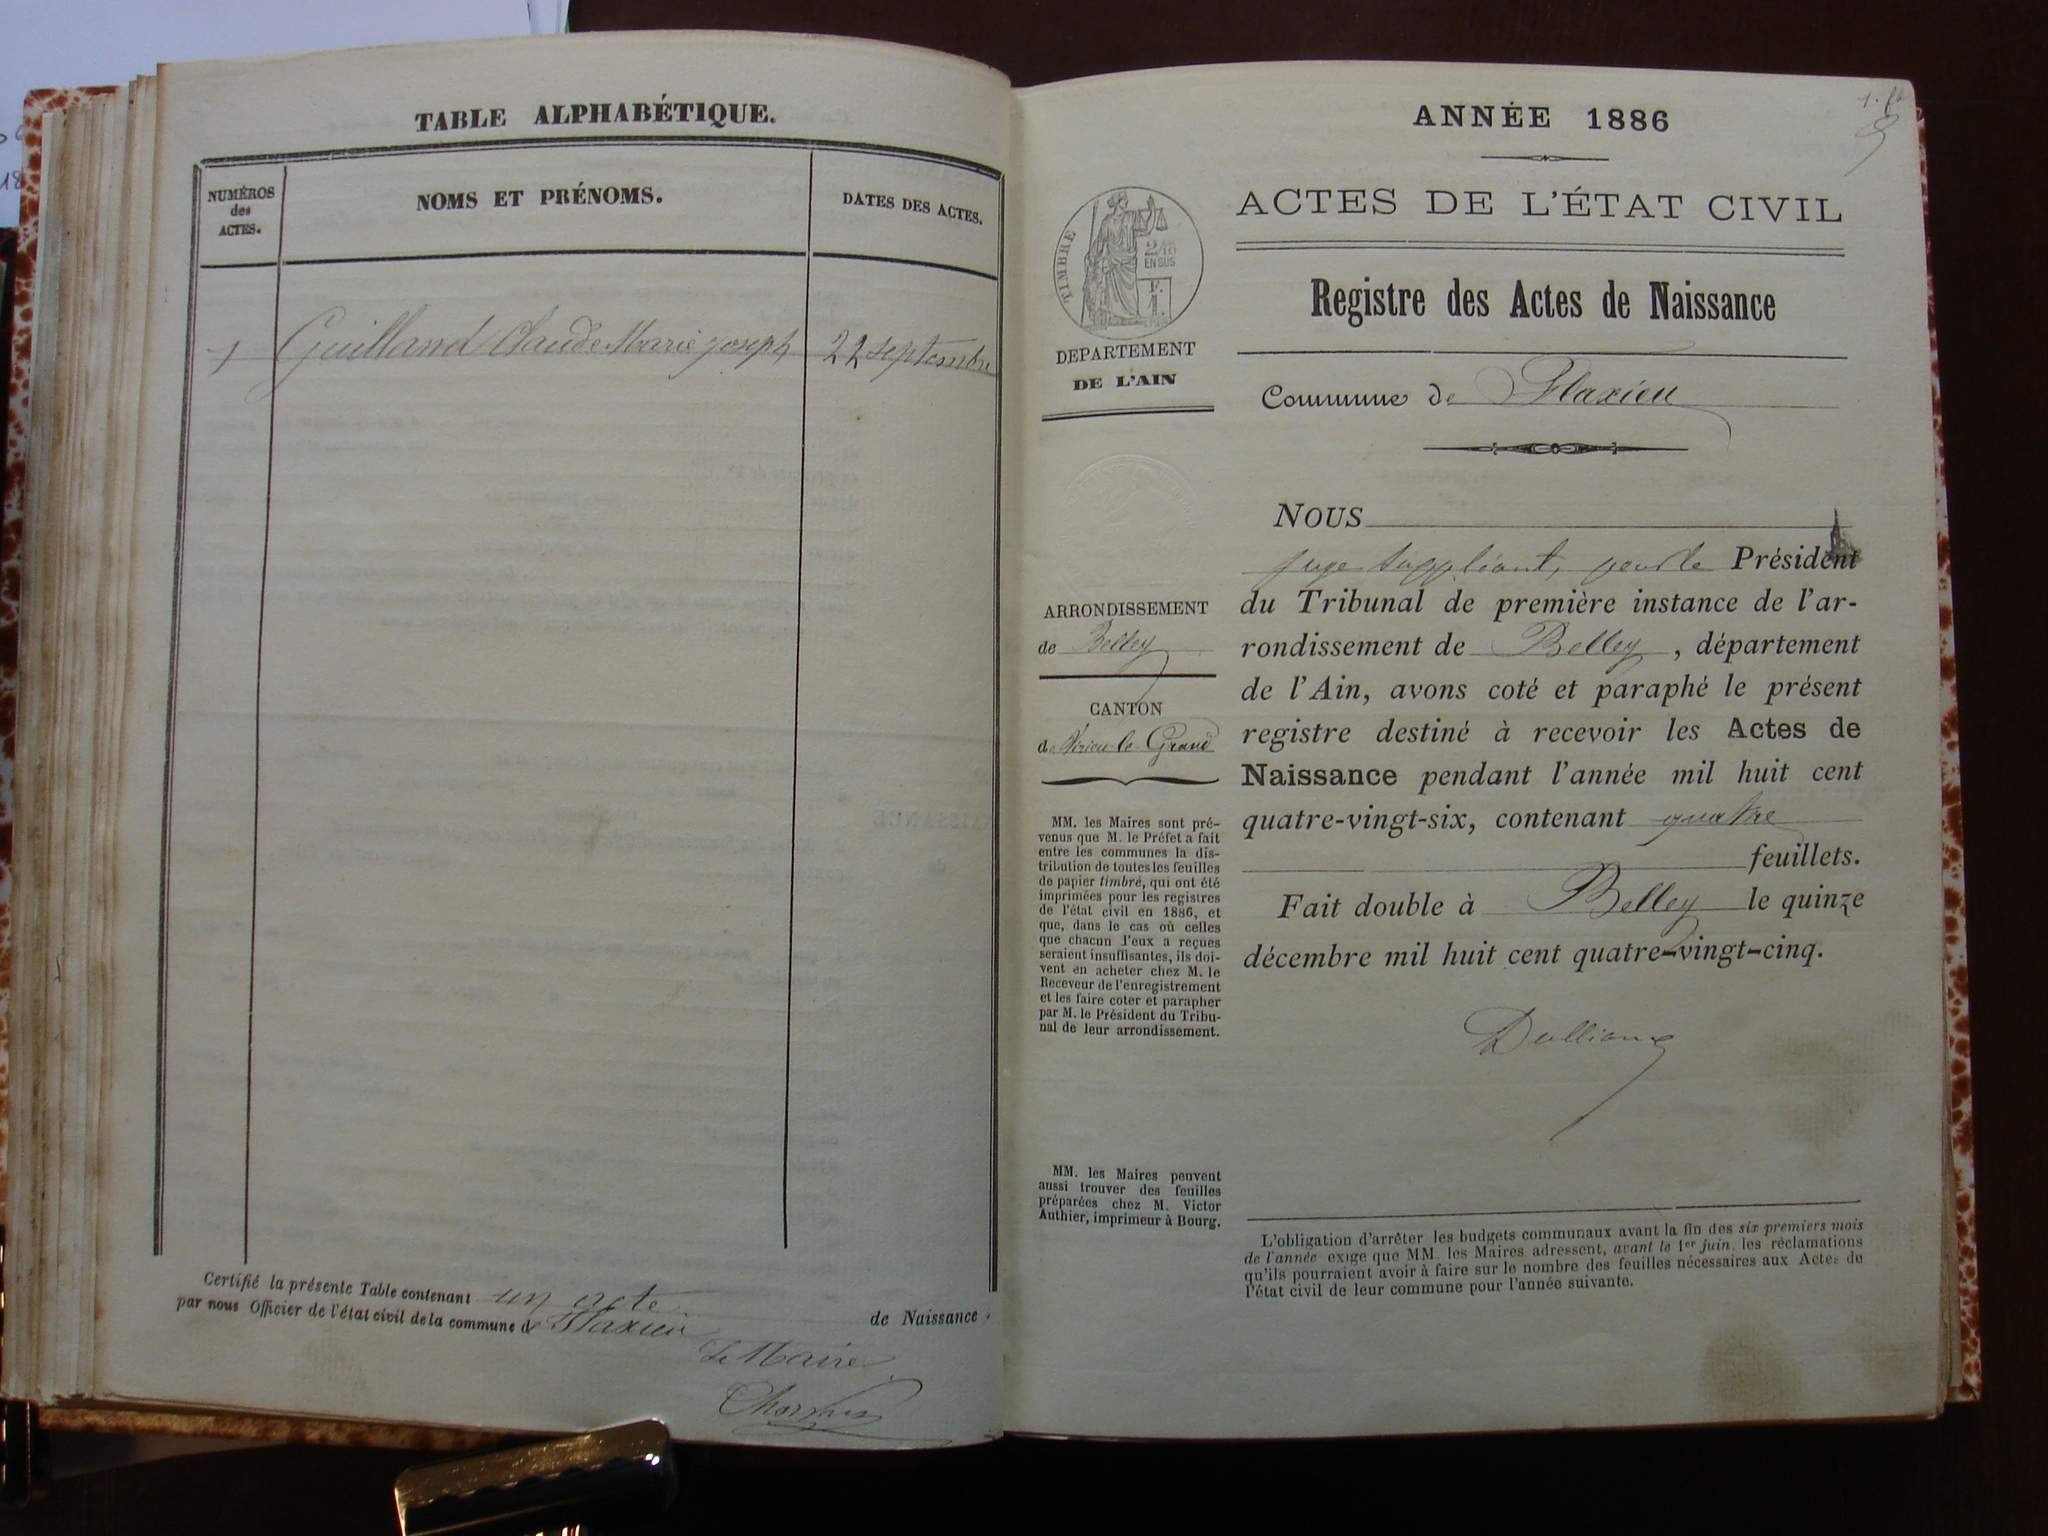 TABLE ALPHABÉTIQUE.
NUMÉROS
des
ACTES.
NOMS ET PRÉNOMS.
DATES DES ACTES.
1 Guilland Claude Marie joseph 22 septembre
Certifié la présente Table contenant un acte de Naissance
par nous Officier de l'état civil de la commune de Flaxieu
Le Maire
18
ANNÉE 1886
ACTES DE L'ÉTAT CIVIL
TIMBRE
2/10
EN SUS
Registre des Actes de Naissance
DEPARTEMENT
DE L'AIN
Commune de Flaxieu
ARRONDISSEMENT
de Belley
CANTON
de Virieu-le-Grand
MM. les Maires sont pré-
venus que M. le Préfet a fait
entre les communes la dis-
tribution de toutes les feuilles
de papier timbré, qui ont été
imprimées pour les registres
de l'état civil en 1886, et
que, dans le cas où celles
que chacun d'eux a reçues
seraient insuffisantes, ils doi-
vent en acheter chez M. le
Receveur de l'enregistrement
et les faire coter et parapher
par M. le Président du Tribu-
nal de leur arrondissement.
MM. les Maires peuvent
aussi trouver des feuilles
préparées chez M. Victor
Authier, imprimeur à Bourg.
NOUS
juge suppléant, pour le Président
du Tribunal de première instance de l'ar-
rondissement de Belley, département
de l'Ain, avons coté et paraphé le présent
registre destiné à recevoir les Actes de
Naissance pendant l'année mil huit cent
quatre-vingt-six, contenant quatre
feuillets.
Fait double à Belley le quinze
décembre mil huit cent quatre-vingt-cinq.
L'obligation d'arrêter les budgets communaux avant la fin des six premiers mois
de l'année exige que MM. les Maires adressent, avant le 1er juin, les réclamations
qu'ils pourraient avoir à faire sur le nombre des feuilles nécessaires aux Actes de
l'état civil de leur commune pour l'année suivante.